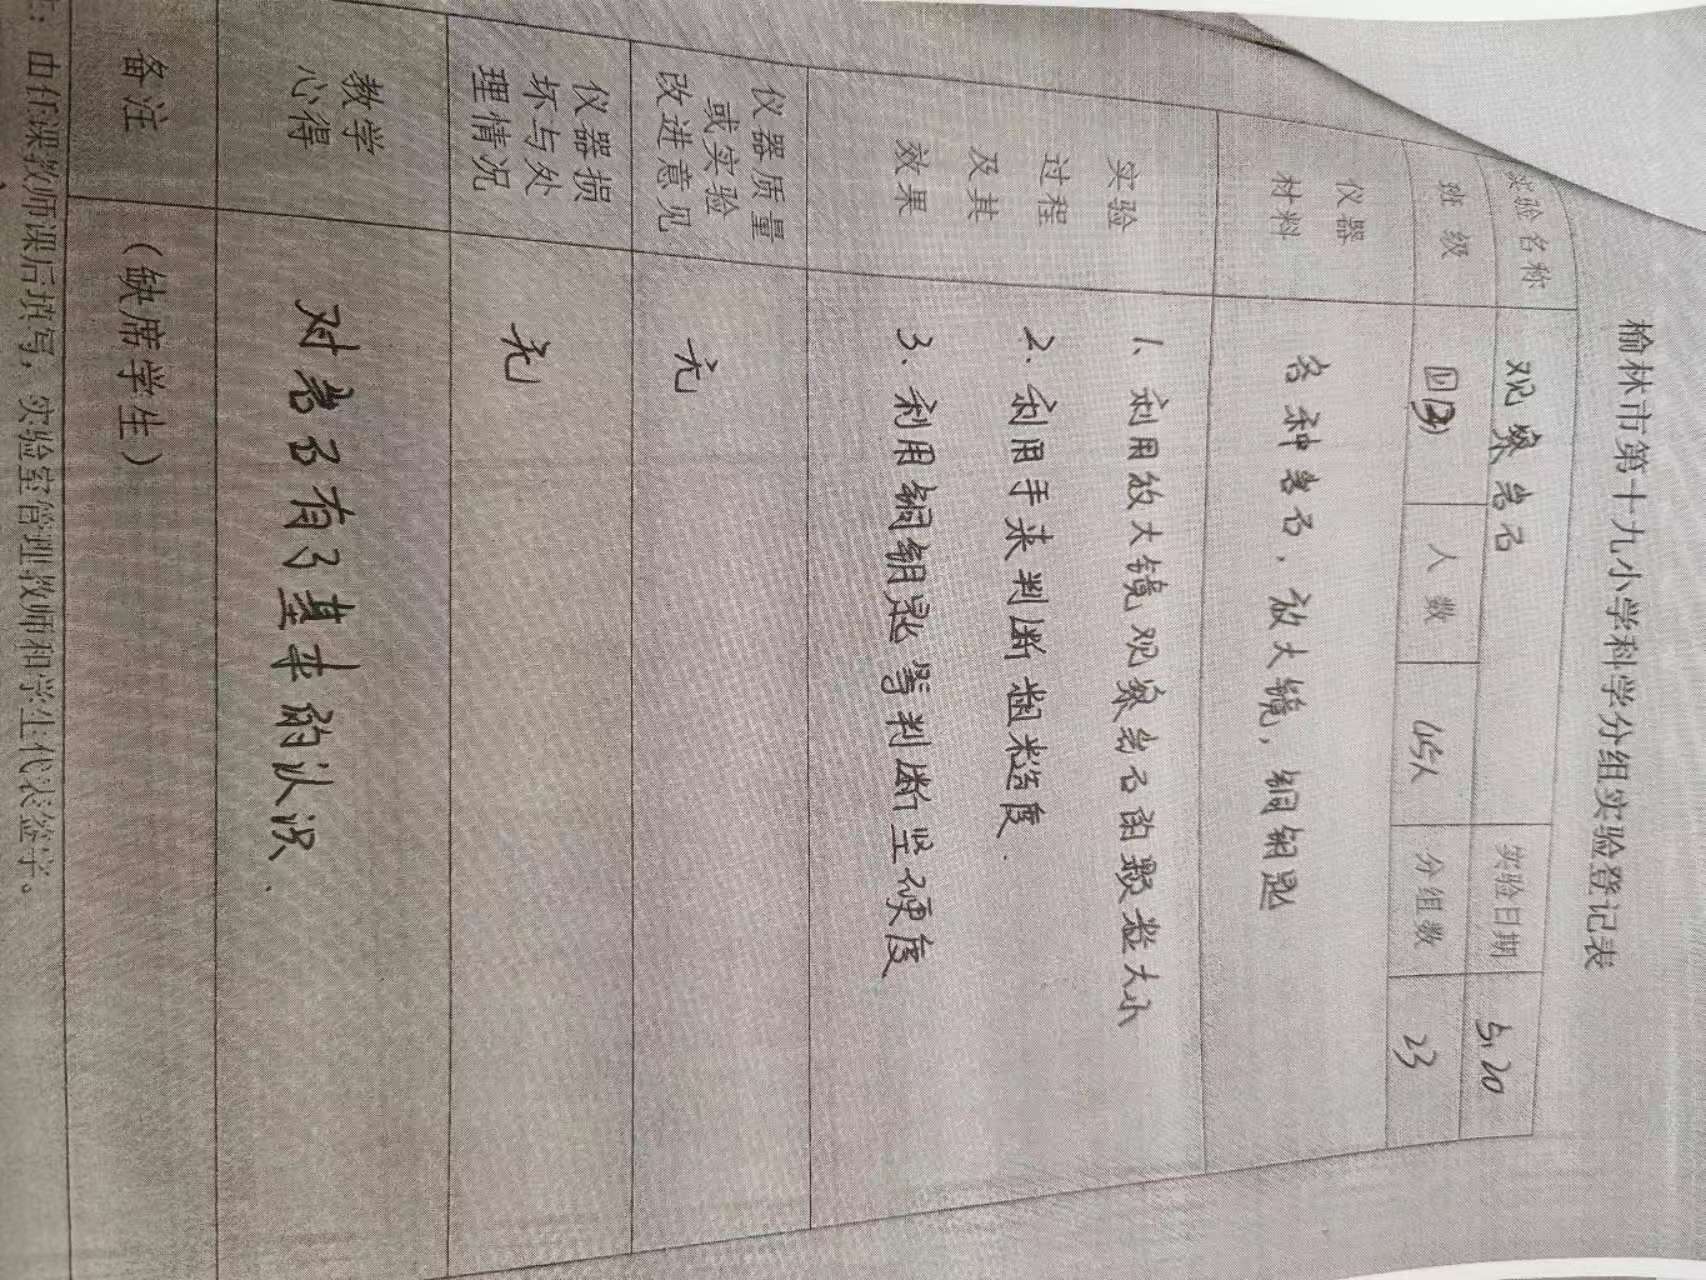 榆林市第十九小学科学分组实验登记表
实验名称 观察岩石 实验日期 5.20
班级 四(3) 人数 45人 分组数 23
仪器
材料
各种岩石、放大镜,铜钥匙
实验
过程
及其
效果
1、利用放大镜观察岩石的颗粒大小
2、利用手来判断粗糙度.
3、利用铜钥匙等判断坚硬度
仪器质量
或实验
改进意见
无
仪器损
坏与处
理情况
无
教学
心得
对岩石有了基本的认识.
备注
(缺席学生)
注:由任课教师课后填写,实验室管理教师和学生代表签字。